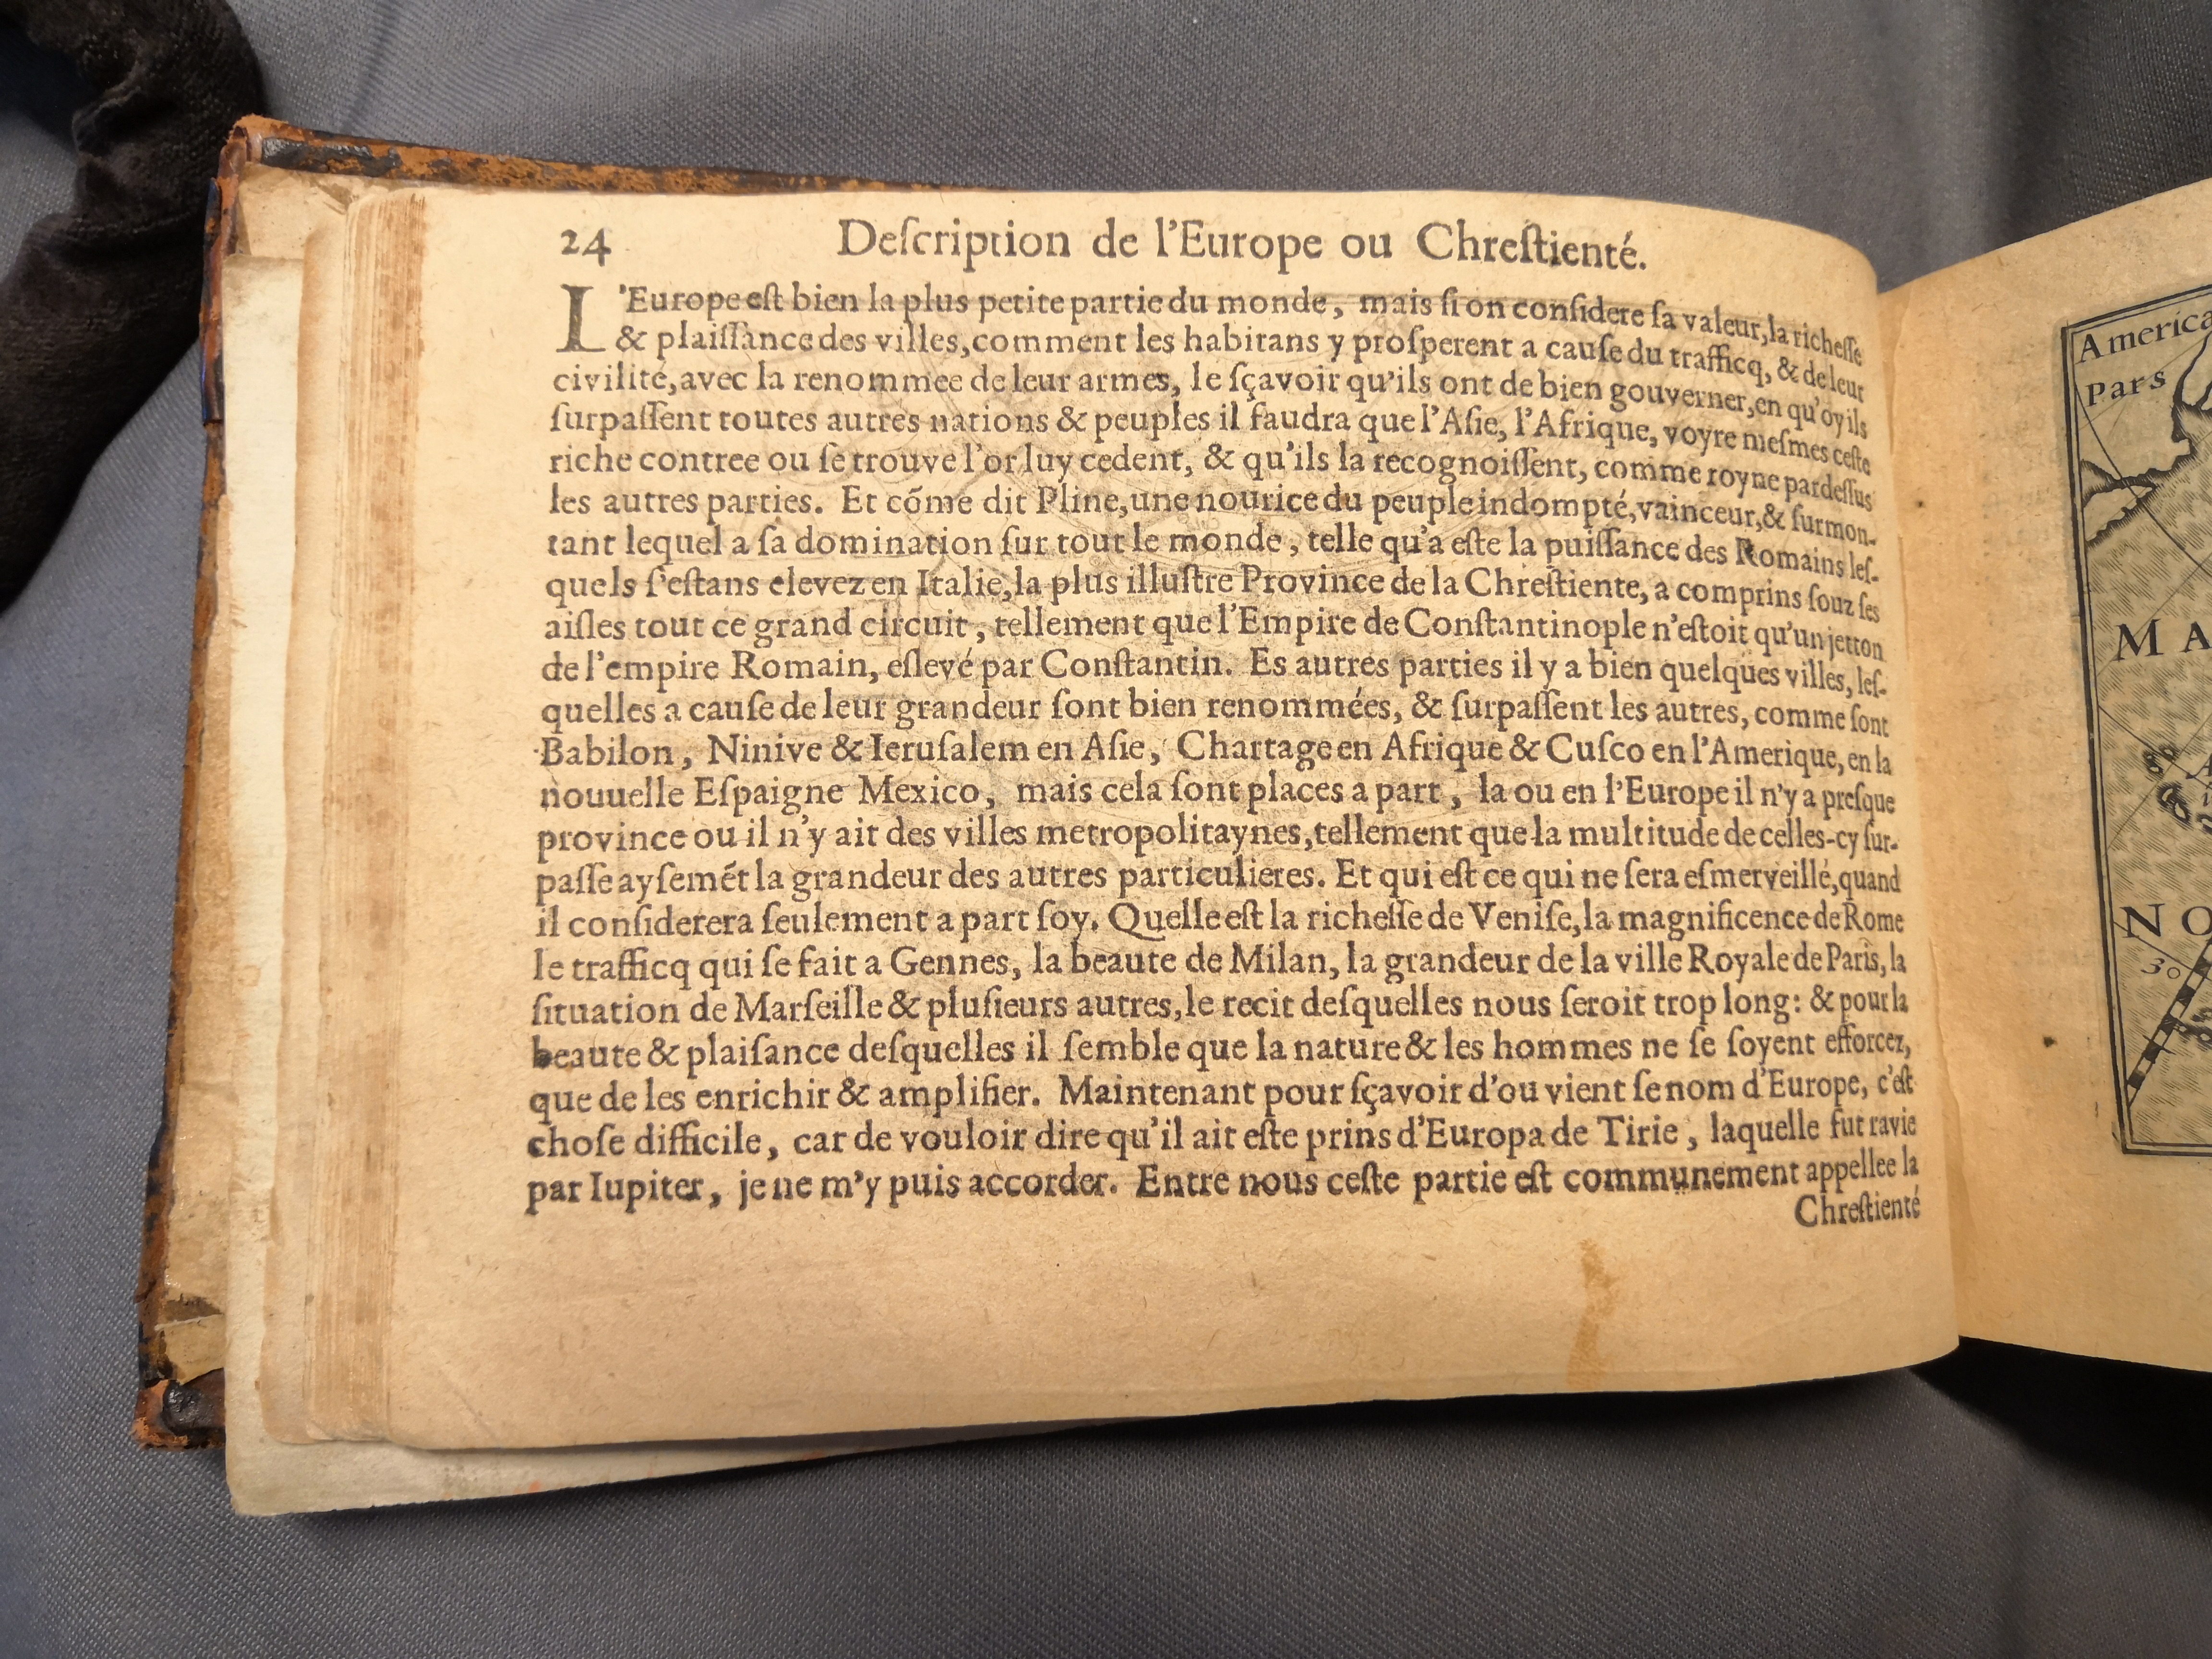 24 Deſcription de l'Europe ou Chreſtienté.
L'Europe eſt bien la plus petite partie du monde, mais ſi on conſidere ſa valeur, la richeſſe
& plaiſſance des villes, comment les habitans y proſperent a cauſe du trafficq, & de leur
civilité, avec la renommee de leur armes, le ſçavoir qu'ils ont de bien gouverner, en qu'oy ils
ſurpaſſent toutes autres nations & peuples il faudra que l'Aſie, l'Afrique, voyre meſmes ceſte
riche contree ou ſe trouve l'or luy cedent, & qu'ils la recognoiſſent, comme royne pardeſſus
les autres parties. Et cõme dit Pline, une nourice du peuple indompté, vainceur, & ſurmon-
tant lequel a ſa domination ſur tout le monde, telle qu'a eſte la puiſſance des Romains leſ-
quels ſ'eſtans elevez en Italie, la plus illuſtre Province de la Chreſtiente, a comprins ſouz ſes
aiſles tout ce grand circuit, tellement que l'Empire de Conſtantinople n'eſtoit qu'un jetton
de l'empire Romain, eſlevé par Conſtantin. Es autres parties il y a bien quelques villes, leſ-
quelles a cauſe de leur grandeur ſont bien renommées, & ſurpaſſent les autres, comme ſont
Babilon, Ninive & Ieruſalem en Aſie, Chartage en Afrique & Cuſco en l'Amerique, en la
nouuelle Eſpaigne Mexico, mais cela ſont places a part, la ou en l'Europe il n'y a preſque
province ou il n'y ait des villes metropolitaynes, tellement que la multitude de celles-cy ſur-
paſſe ayſemẽt la grandeur des autres particulieres. Et qui eſt ce qui ne ſera eſmerveillé, quand
il conſiderera ſeulement a part ſoy. Quelle eſt la richeſſe de Veniſe, la magnificence de Rome
le trafficq qui ſe fait a Gennes, la beaute de Milan, la grandeur de la ville Royale de Paris, la
ſituation de Marſeille & pluſieurs autres, le recit deſquelles nous ſeroit trop long: & pour la
beaute & plaiſance deſquelles il ſemble que la nature & les hommes ne ſe ſoyent efforcez,
que de les enrichir & amplifier. Maintenant pour ſçavoir d'ou vient ſe nom d'Europe, c'eſt
choſe difficile, car de vouloir dire qu'il ait eſte prins d'Europa de Tirie, laquelle fut ravie
par Iupiter, je ne m'y puis accorder. Entre nous ceſte partie eſt communement appellee la
Chreſtienté
America
Pars
MA
NO
30